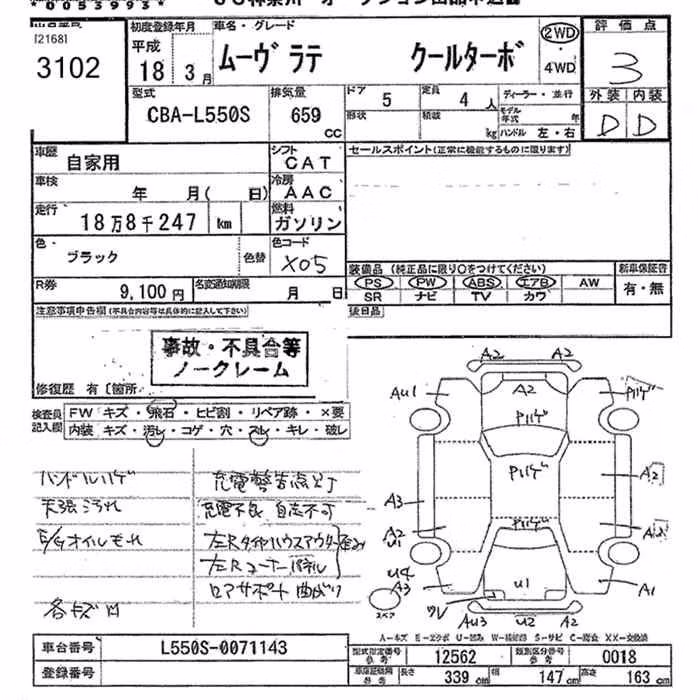 *0053993*
[2168]
3102
初度登録年月
平成
18 3月
車名・グレード
ムーヴ ラテ クールターボ
2WD
・
4WD
評価点
3
外装 内装
D D
型式
CBA-L550S
排気量
659
CC
ドア
5
定員
4人
ディーラー・並行
形状
積載
kg
モデル年式
年
ハンドル 左・右
車歴
自家用
シフト
CAT
セールスポイント(正常に機能するものに限ります)
車検
年 月( 日)
冷房
AAC
走行
18万8千247 km
燃料
ガソリン
色
ブラック
色替
色コード
X05
装備品 (純正品に限り○をつけてください)
新車保証書
PS PW ABS エアB AW
有・無
SR ナビ TV カワ
R券
9,100円
名変通知期限
月 日
注意事項申告欄(不具合内容等は具体的に記入して下さい)
後日品
事故・不具合等
ノークレーム
修復歴 有〔箇所
検査員
記入欄
FW キズ・飛石・ヒビ割・リペア跡・×要
内装 キズ・汚レ・コゲ・穴・スレ・キレ・破レ
ハンドルハゲ
天張汚れ
E/Gオイルもれ
各キズ凹
充電警告点灯
充電不良 自走不可
左Rタイヤハウスアウター
左Rコーナーパネル
歪み
ロアサポート曲がり
A2 A2
AU1 A2 Pハゲ
Pハゲ
Pハゲ
A3 A2
Pハゲ
A2 A2
U1
U4
A3 U1 A1
スペア
ツレ
AU3 U2 A2
A-キズ E-エクボ U-凹み W-補修跡 S-サビ C-腐食 XX-交換済
車台番号
L550S-0071143
登録番号
型式指定番号
参考
12562
類別区分番号
参考
0018
車庫証明用
参考
長さ
339 cm
幅
147 cm
高さ
163 cm